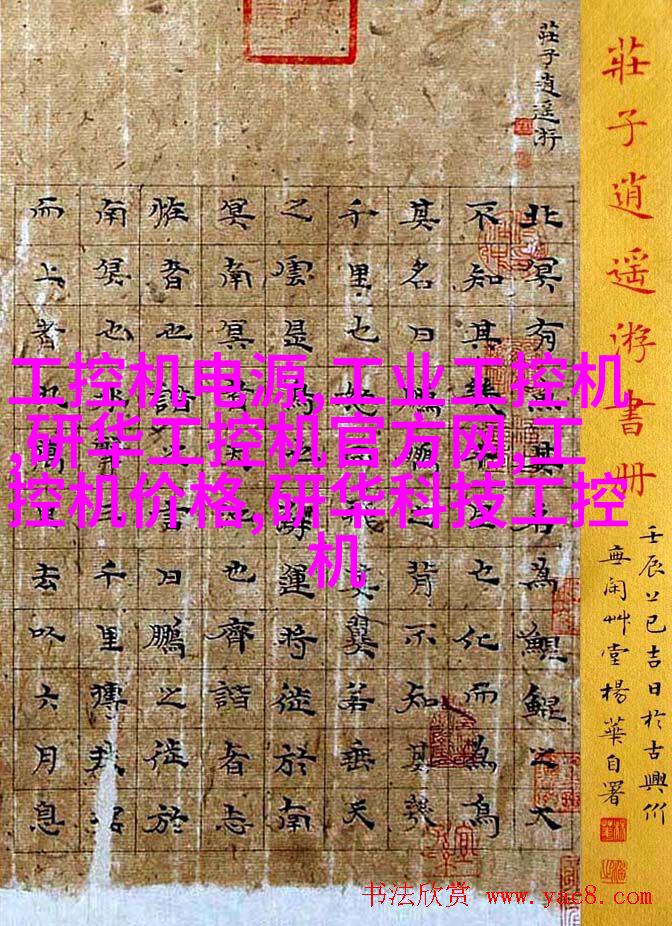 莊子逍遥游書册
壬辰上巳吉日於古興竹
無閑艸堂楊華自署
莊子逍遥游
北冥有魚其名為鯤鯤之大
不知其幾千里也化而為鳥
其名曰鵬鵬之背不知其幾
千里也怒而飛其翼若垂天
之雲是鳥也海運將徙於南
冥南冥者天池也齊諧者志
怪者也諧之言曰鵬之徙於
南冥也水擊三千里摶扶搖
而上者九萬里去以六月息
工控机电源,工业工控机
,研华工控机官方网,工
控机价格,研华科技工控
机
书法欣赏 www.yac8.com